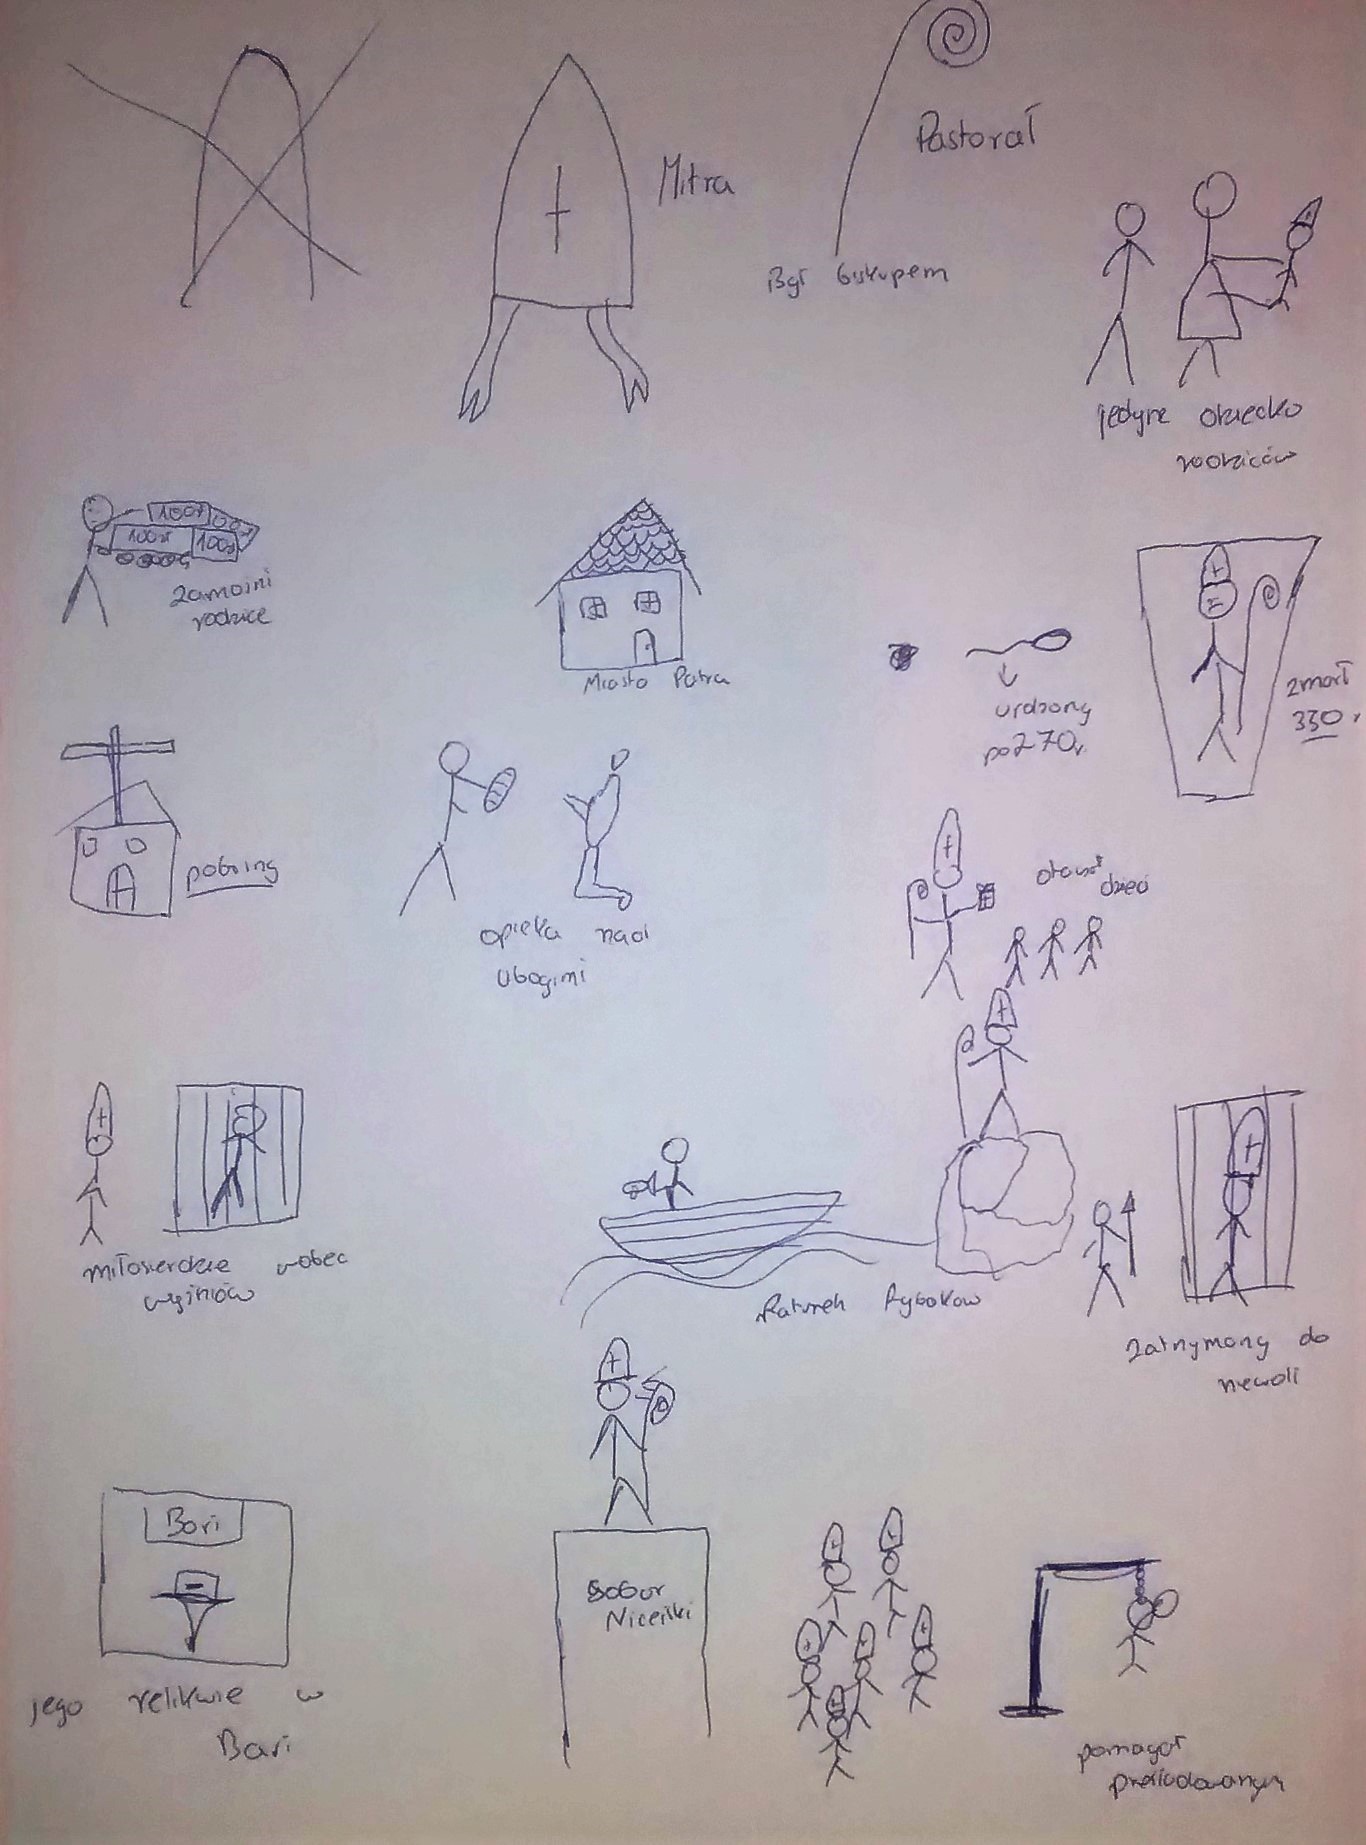 Mitra
Pastorał
Był biskupem
jedyne dziecko
rodziców
100zł
100zł 100zł
zamożni
rodzice
Miasto Patra
urdzony
po 270r.
zmarł
330r
pobożny
opieka nad
ubogimi
dzieci
miłosierdzie wobec
więźniów
Ratunek Rybaków
zatrzymany do
niewoli
Bari
jego relikwie w
Bari
Sobór
Niceiski
pomagał
prześladowanym